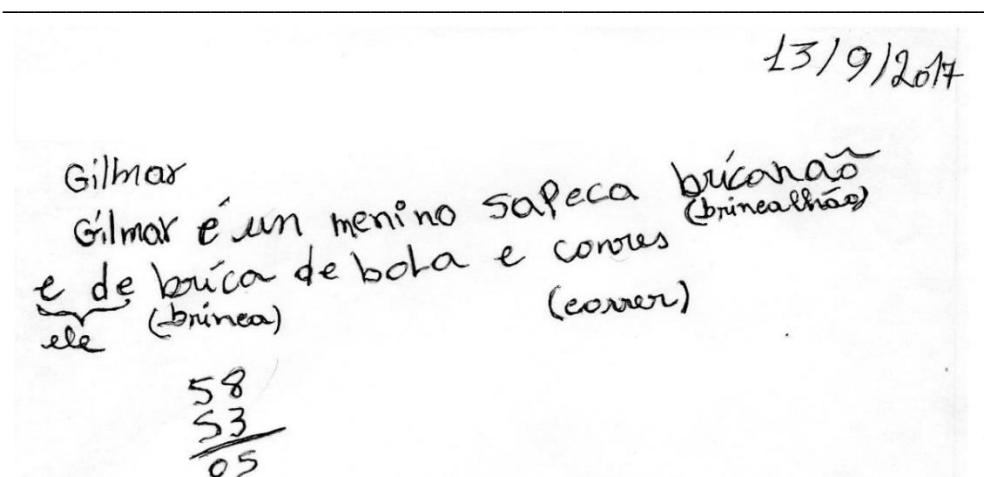 13/9/2017
Gilmar
Gilmar é un menino sapeca bricanaõ
(brincalhão)
e de brica de bola e corres
ele (brinca) (correr)
58
53
05